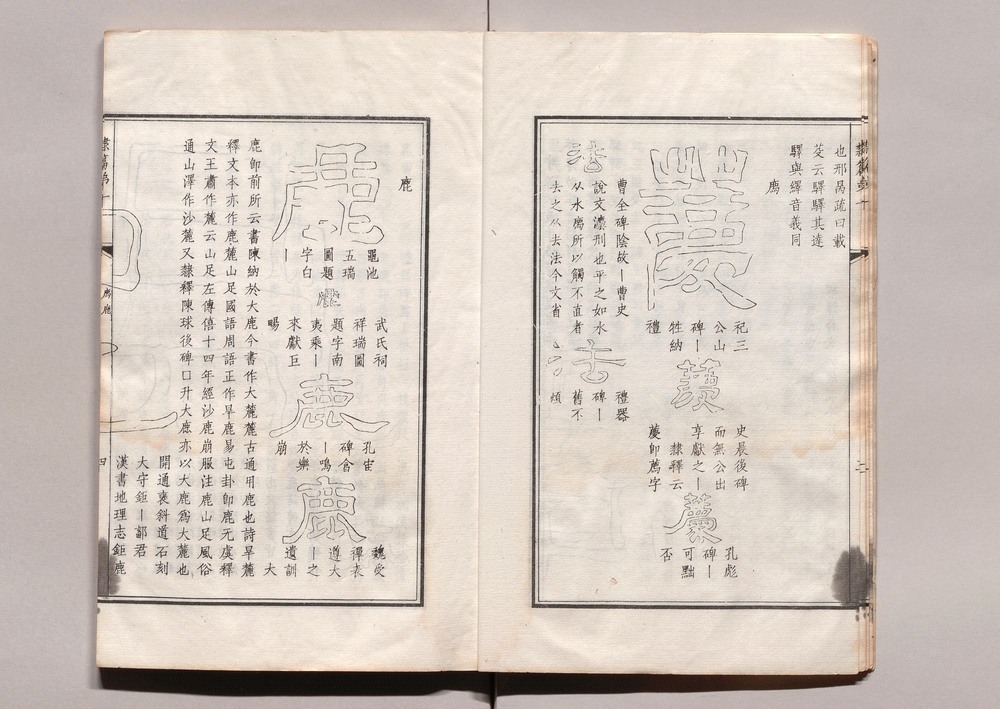 也邢昺疏曰載
芟云驛驛其達
驛與繹音義同
廌
祀三
公山
碑丨
牲納
禮
史晨後碑
而無公出
享獻之丨
隸釋云
薦卽薦字
孔彪
碑丨
可黜
否
曹全碑陰故丨曹史
說文灋刑也平之如水
从水廌所以觸不直者
去之从去法今文省
法
禮器
碑丨
舊不
煩
鹿
黽池
五瑞
圖題
字白
丨
武氏祠
祥瑞圖
題字南
夷乘丨
來獻巨
暢
鹿
孔宙
碑會
丨鳴
於樂
崩
鹿
魏受
禪表
遵大
丨之
遺訓
大
鹿卽前所云書陳納於大鹿今書作大麓麓古通用鹿也詩旱麓
釋文本亦作鹿麓山足國語周語正作旱鹿易屯卦卽鹿无虞釋
文王肅作麓云山足左傳僖十四年經沙鹿崩服注鹿山足風俗
通山澤作沙麓又隸釋陳球後碑口升大鹿亦以大鹿爲大麓也
開通褒斜道石刻
大守鉅丨鄐君
漢書地理志鉅鹿
四